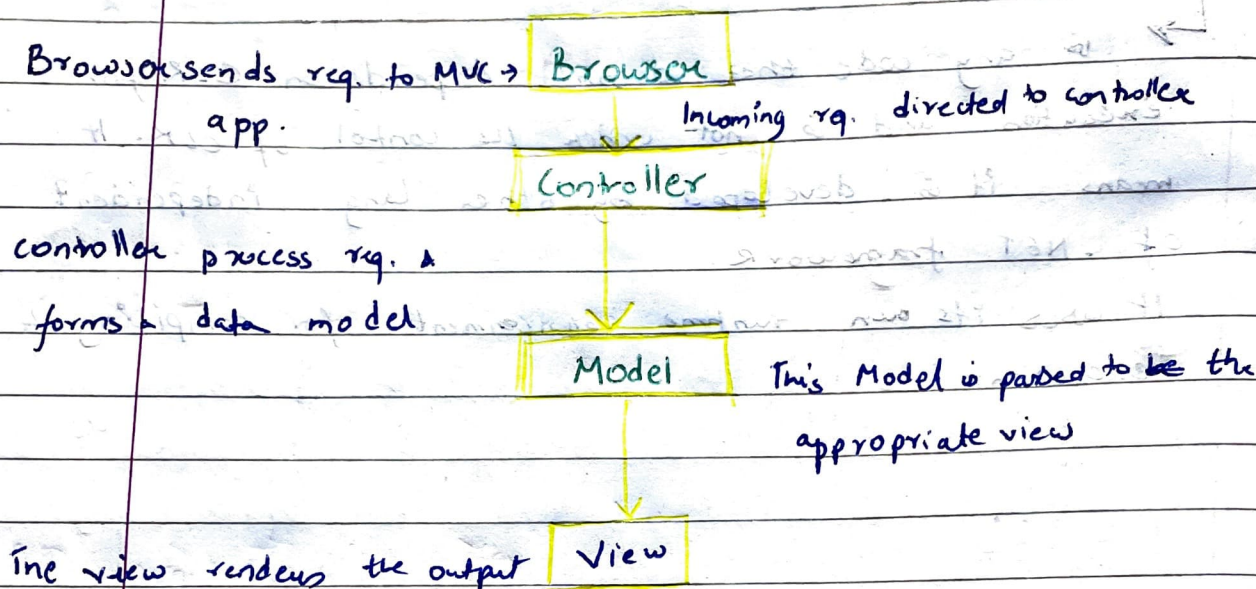 Browser sends req. to MVC → Browser
app.
Incoming rq. directed to controller
Controller
controller process req. &
forms a data model
Model
This Model is passed to be the
appropriate view
The view renders the output
View